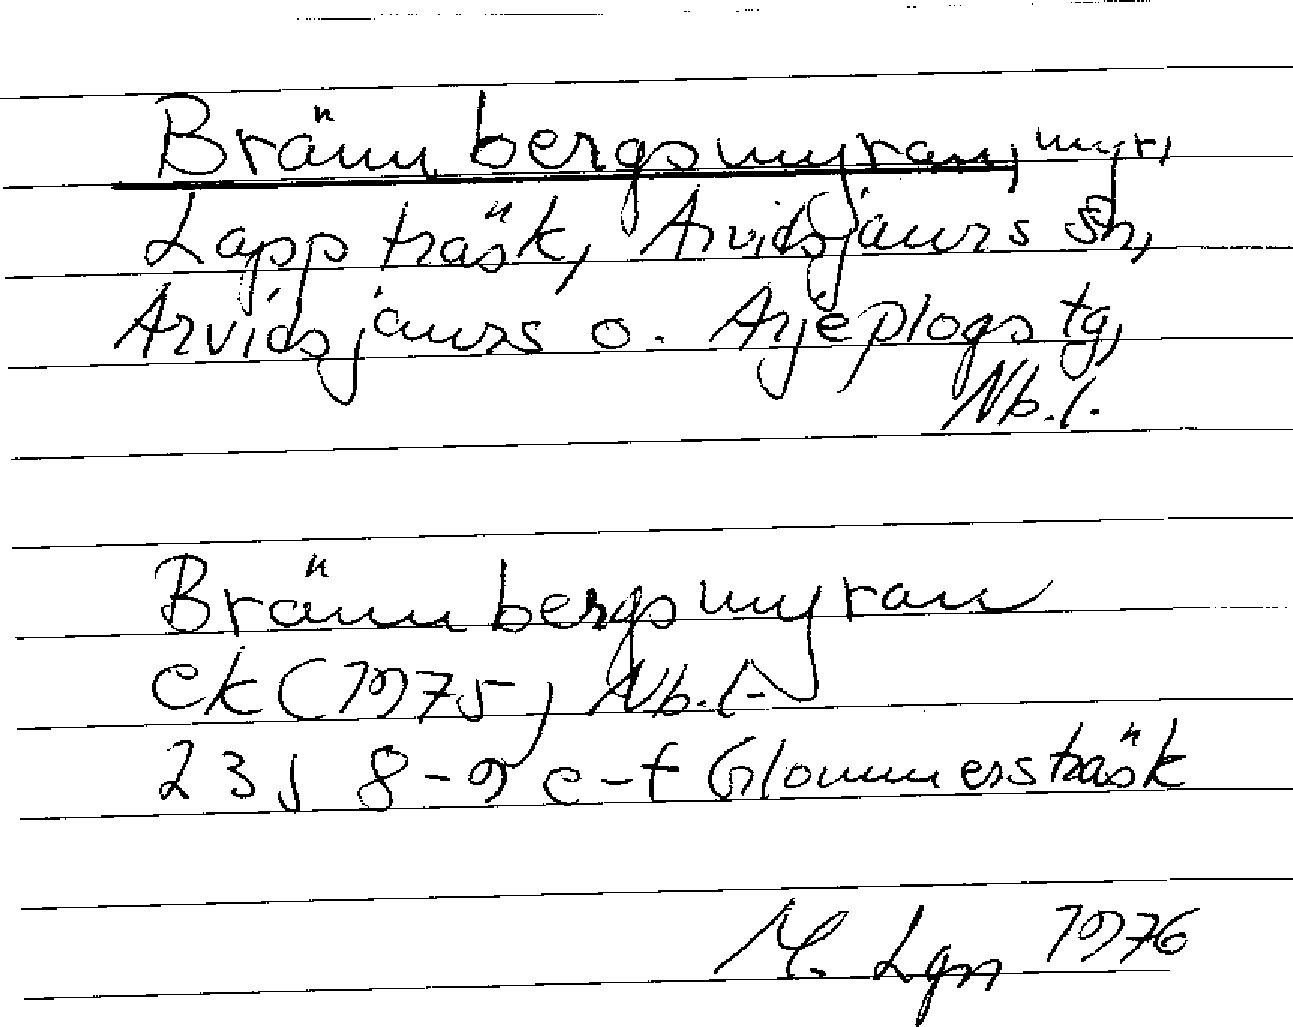 Brännbergsmyran, myr,
Lappträsk, Arvidsjaurs sn,
Arvidsjaurs o. Arjeplogs tg,
Nb.l.
Brännbergsmyran
ek (1975), Nb.l.
23J 8-9 e-f Glommersträsk
M. Lgn 1976